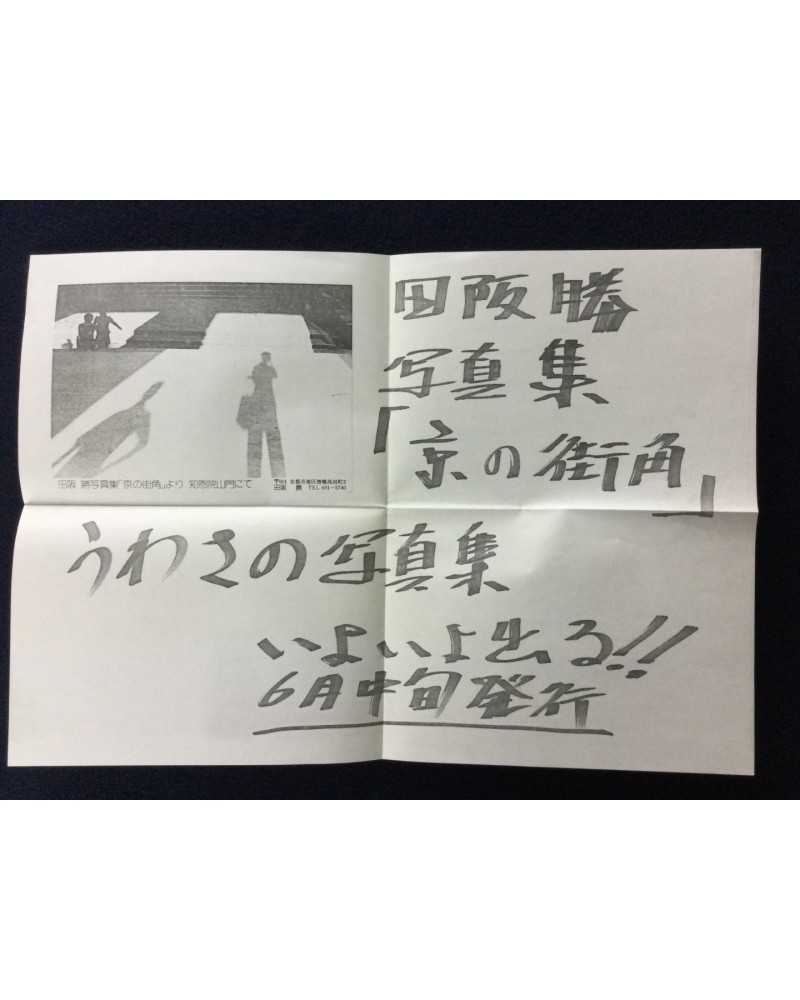 田阪勝
写真集
「京の街角」
田阪 勝写真集「京の街角」より 知恩院山門にて
田阪 勝 TEL
うわさの写真集
いよいよ出る!!
6月中旬発行